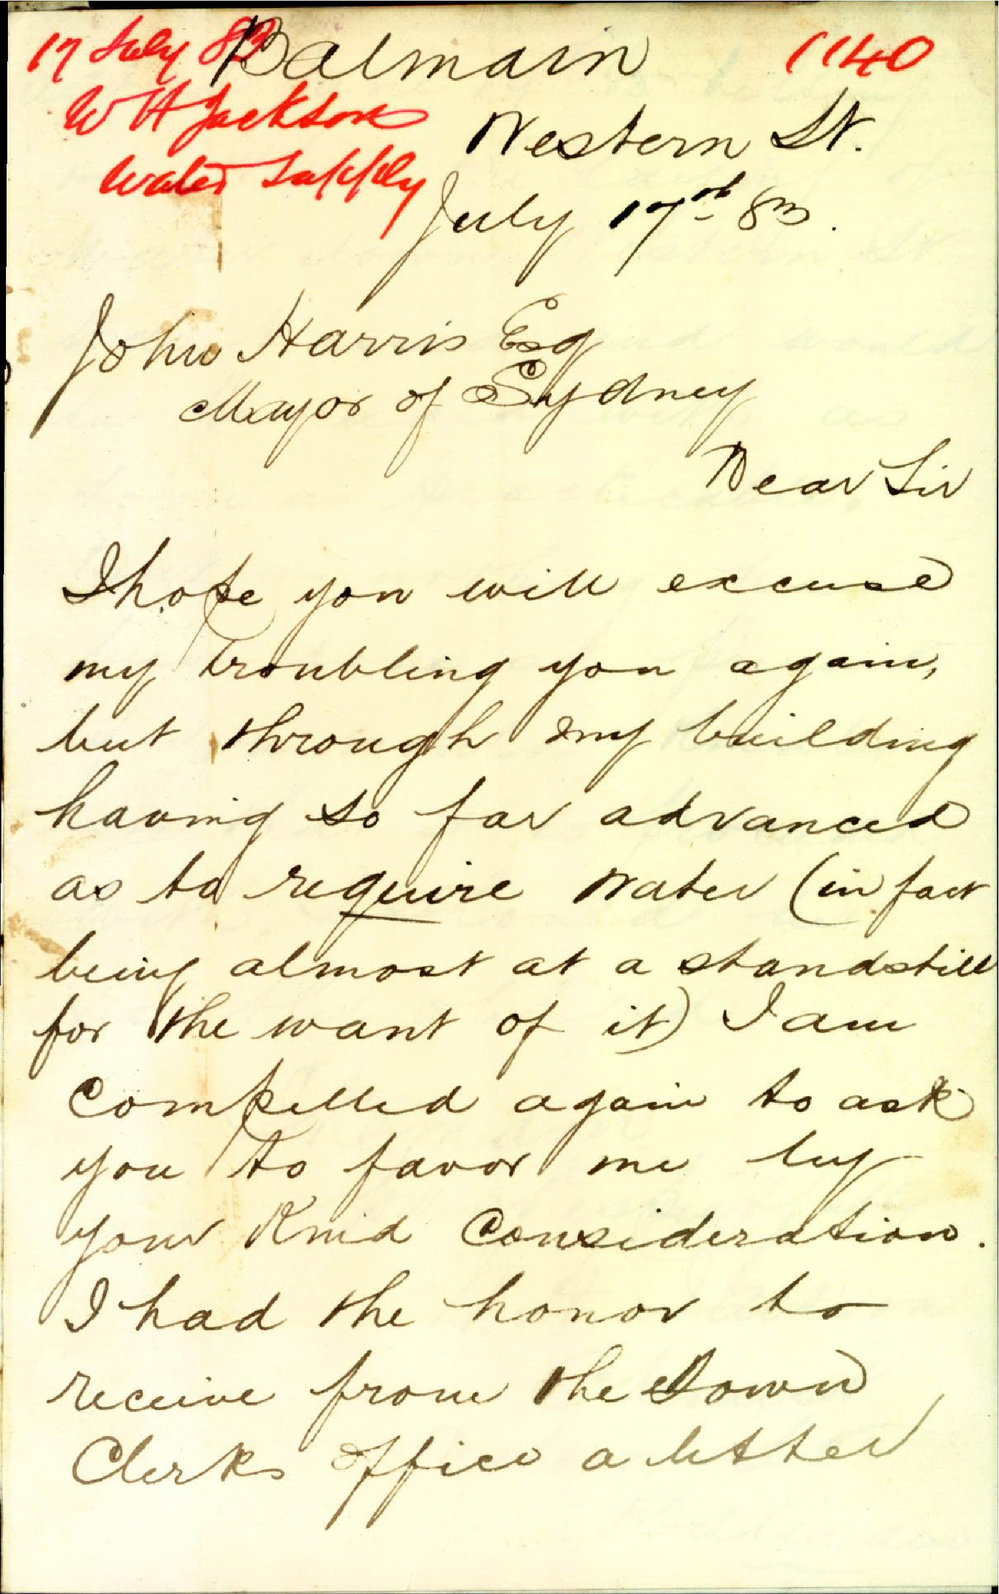 17 July 83
W H Jackson
Water Supply
1140
Balmain
Western St.
July 17th 83.
John Harris Esq
Mayor of Sydney
Dear Sir
I hope you will excuse
my troubling you again,
but through my building
having so far advanced
as to require water (in fact
being almost at a standstill
for the want of it) I am
compelled again to ask
you to favor me by
your kind consideration.
I had the honor to
receive from the Town
Clerks office a letter